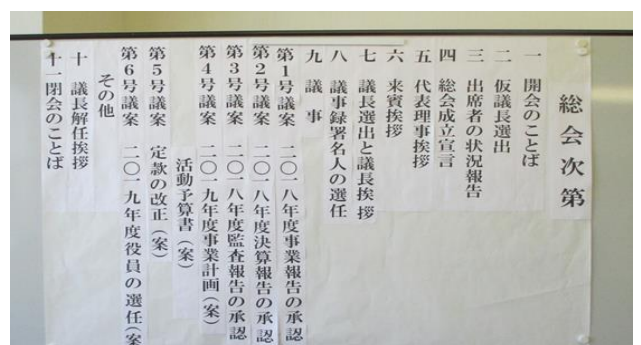 総会次第
一 開会のことば
二 仮議長選出
三 出席者の状況報告
四 総会成立宣言
五 代表理事挨拶
六 来賓挨拶
七 議長選出と議長挨拶
八 議事録署名人の選任
九 議事
第1号議案 二〇一八年度事業報告の承認
第2号議案 二〇一八年度決算報告の承認
第3号議案 二〇一八年度監査報告の承認
第4号議案 二〇一九年度事業計画(案)
活動予算書(案)
第5号議案 定款の改正(案)
第6号議案 二〇一九年度役員の選任(案
その他
十 議長解任挨拶
十一閉会のことば